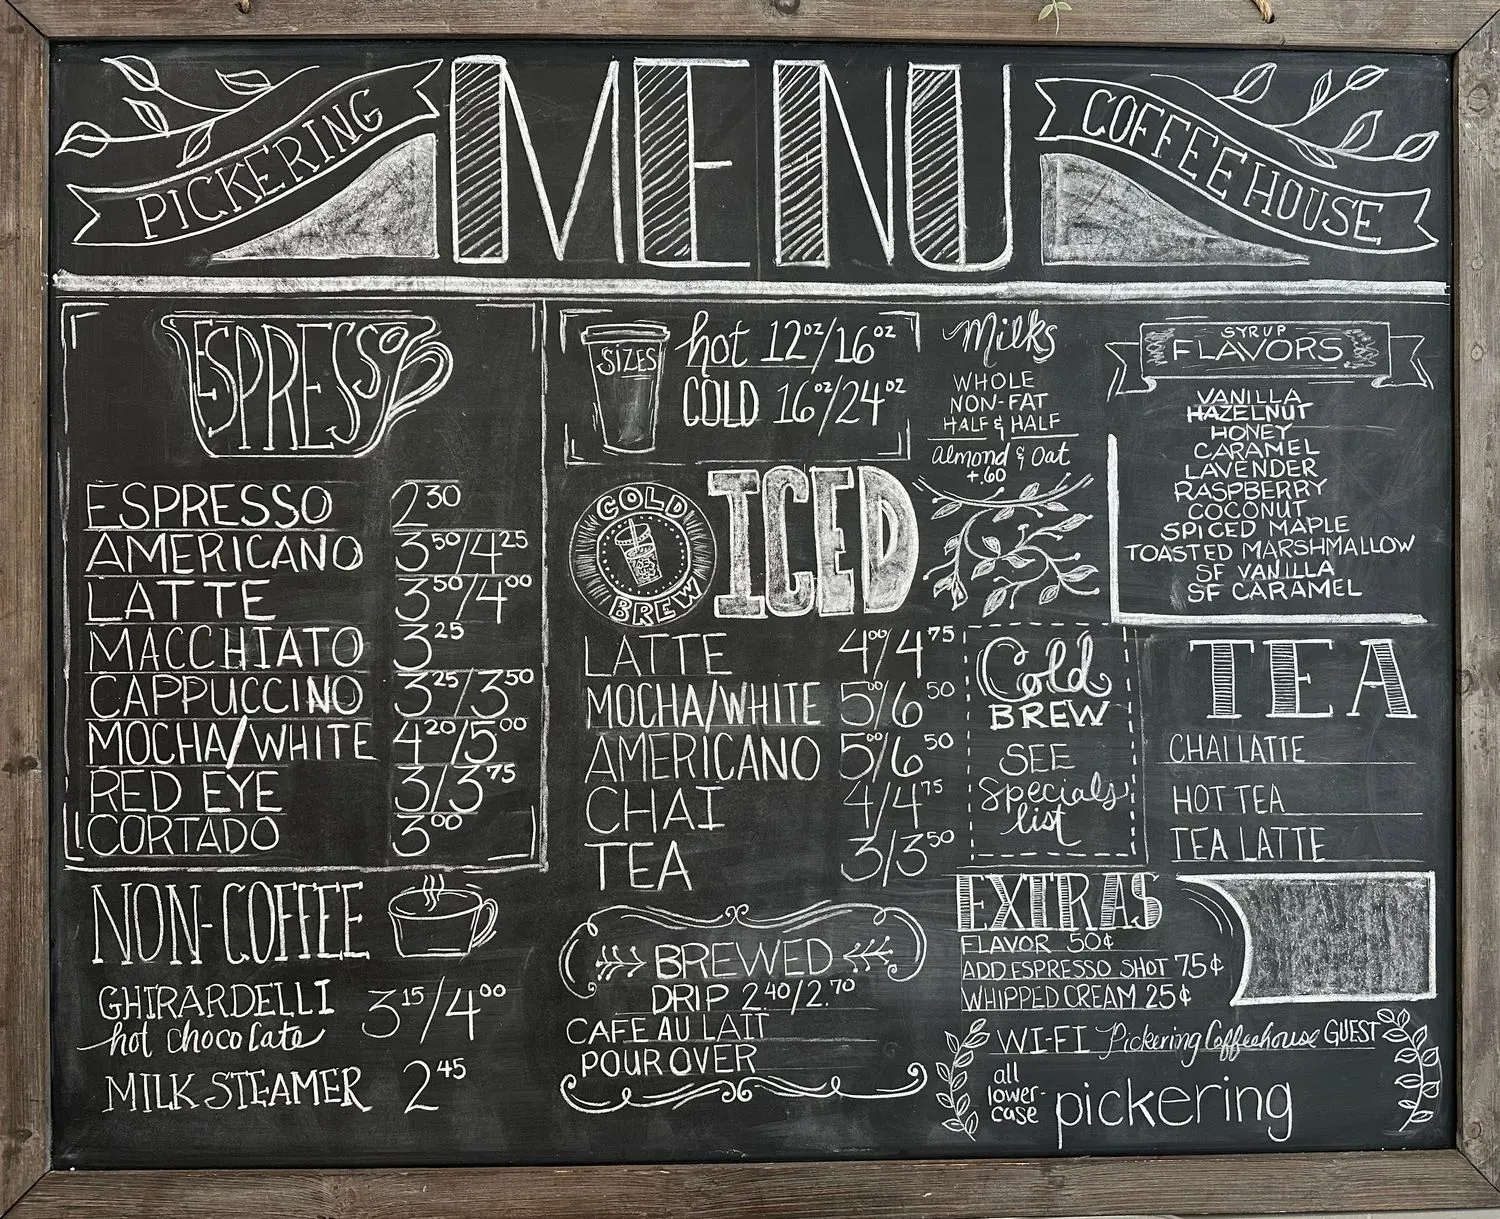 PICKERING MENU COFFEE HOUSE
ESPRESSO
ESPRESSO 2 30
AMERICANO 3 50/4 25
LATTE 3 50/4 00
MACCHIATO 3 25
CAPPUCCINO 3 25/3 50
MOCHA/WHITE 4 20/5 00
RED EYE 3/3 75
CORTADO 3 00
NON-COFFEE
GHIRARDELLI
hot chocolate 3 15/4 00
MILK STEAMER 2 45
SIZES
hot 12oz/16oz
COLD 16oz/24oz
COLD
BREW
ICED
LATTE 4 00/4 75
MOCHA/WHITE 5 00/6 50
AMERICANO 5 00/6 50
CHAI 4/4 75
TEA 3/3 50
BREWED
DRIP 2 40/2.70
CAFE AU LAIT
POUR OVER
Milks
WHOLE
NON-FAT
HALF & HALF
Almond & Oat
+.60
Cold
BREW
SEE
Specials
list
SYRUP
FLAVORS
VANILLA
HAZELNUT
HONEY
CARAMEL
LAVENDER
RASPBERRY
COCONUT
SPICED MAPLE
TOASTED MARSHMALLOW
SF VANILLA
SF CARAMEL
TEA
CHAI LATTE
HOT TEA
TEA LATTE
EXTRAS
FLAVOR 50¢
ADD ESPRESSO SHOT 75¢
WHIPPED CREAM 25¢
WI-FI Pickering Coffeehouse GUEST
all
lower-
case
pickering